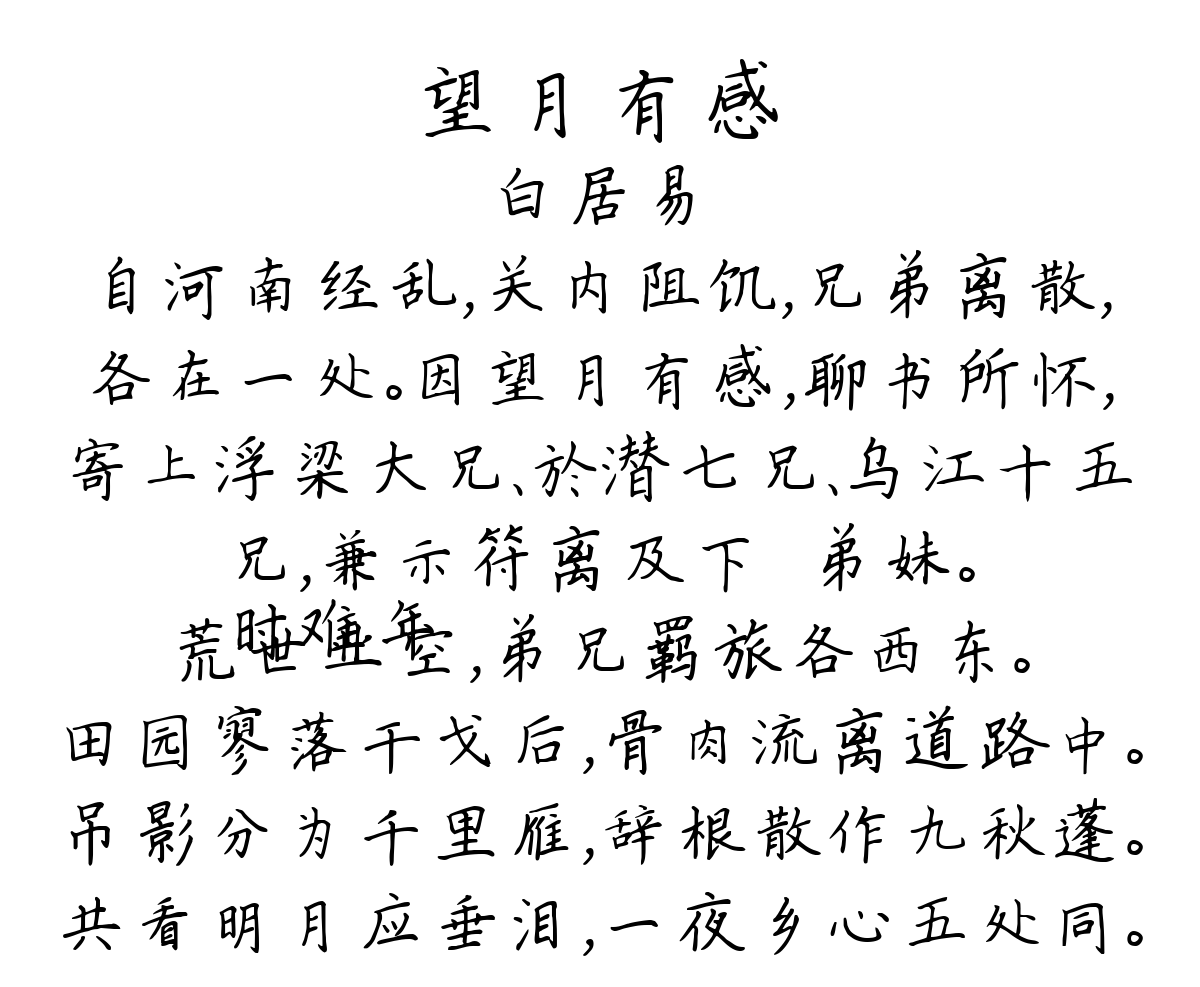 望月有感
白居易
自河南经乱,关内阻饥,兄弟离散,
各在一处。因望月有感,聊书所怀,
寄上浮梁大兄、於潜七兄、乌江十五
兄,兼示符离及下 弟妹。
时难年
荒世业空,弟兄羁旅各西东。
田园寥落干戈后,骨肉流离道路中。
吊影分为千里雁,辞根散作九秋蓬。
共看明月应垂泪,一夜乡心五处同。